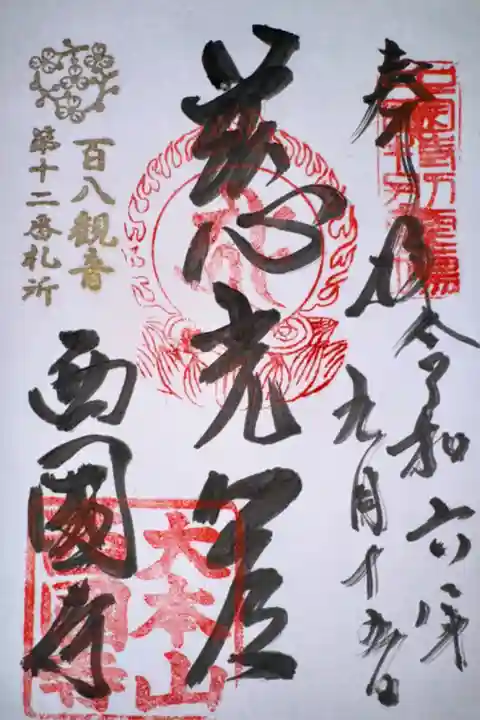 奉拝
令和六年
九月十九日
慈光殿
百八観音
第十二番札所
西國寺
大本山
西国寺